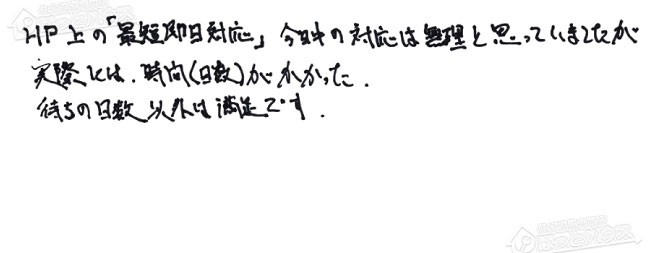 HP上の「最短即日対応」今日中の対応は無理と思っていましたが
実際には、時間(日数)がかかった.
待ちの日数以外は満足です.